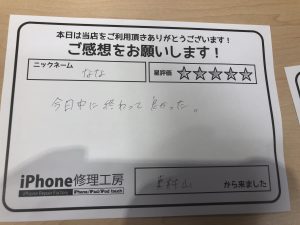 本日は当店をご利用頂きありがとうございます!
ご感想をお願いします!
ニックネーム
なな
星評価 ☆☆☆☆☆
今日中に終わって良かった。
iPhone修理工房
iPhone Repair Factory
iPhone/iPad/iPod touch
東村山 から来ました